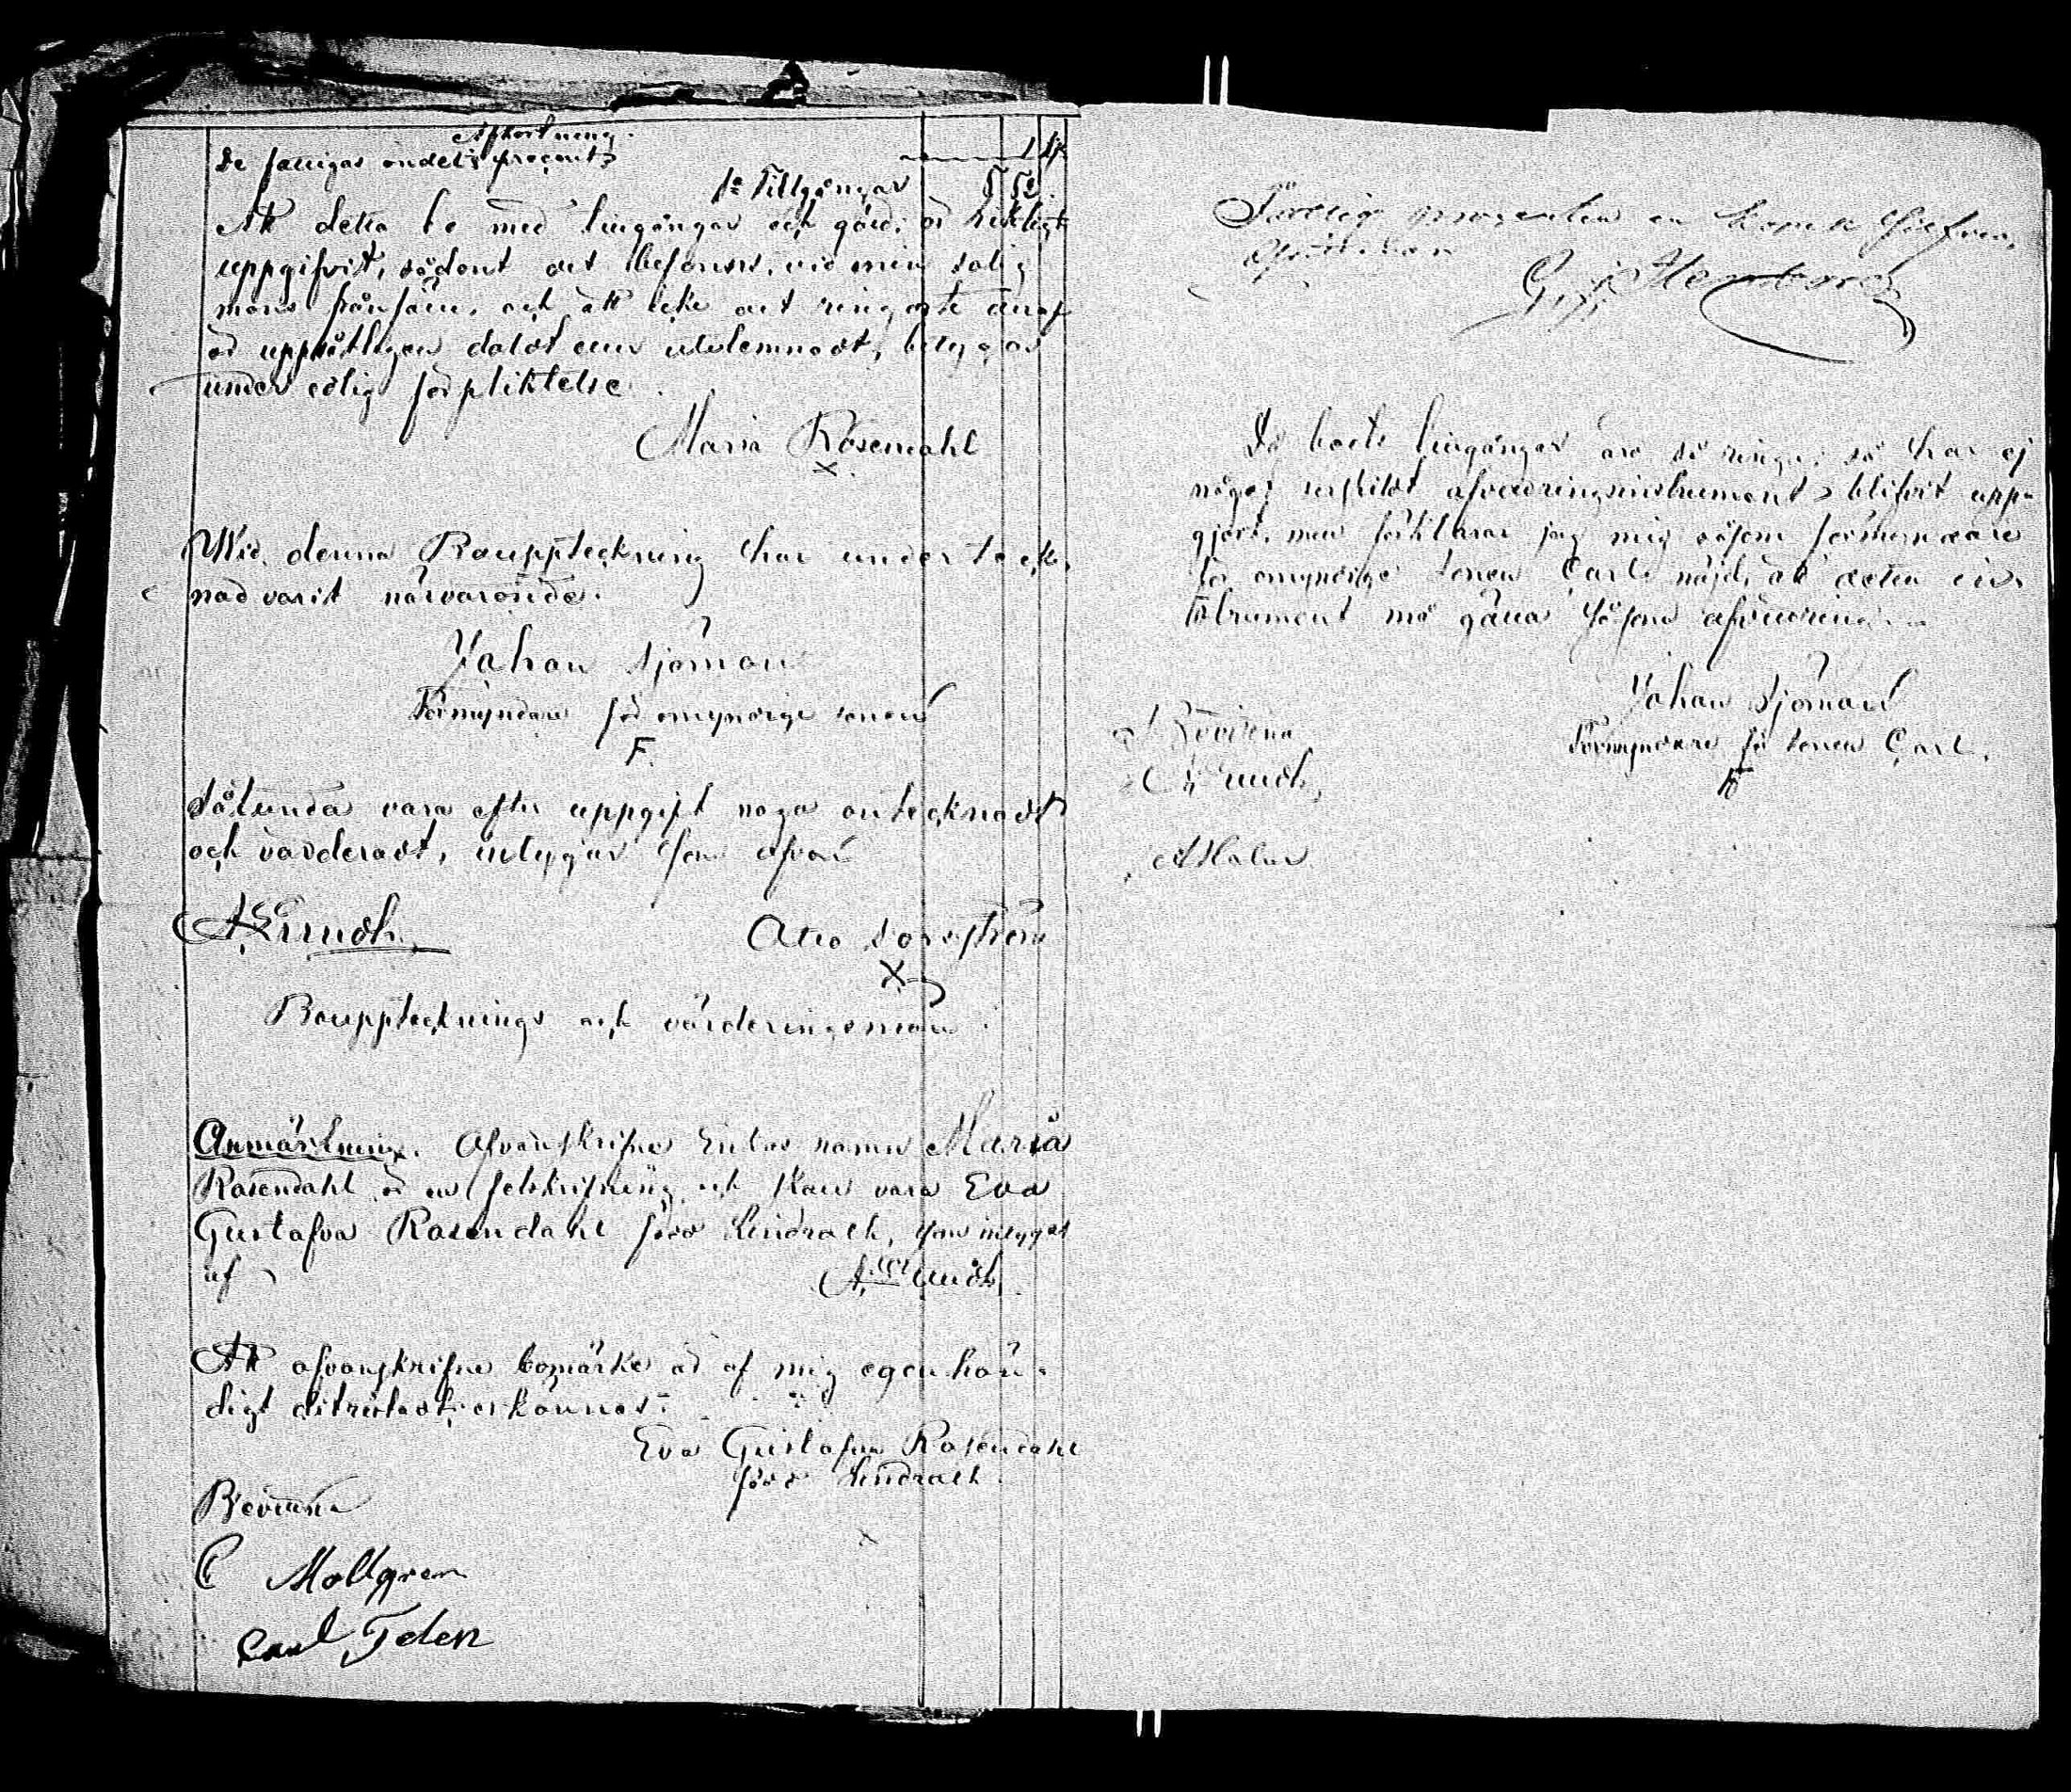 Afkortning
De fattigas andels procent
S:a Tillgångar 5 52
Att detta bo med tillgångar och gäld är riktigt
uppgifvit, sådant det befanns, vid min salig
mans frånfälle, och att icke det ringaste deraf
är uppsåtligen doldt eller utelemnadt, betygas
under edlig förpliktelse.
Maria Rosendahl
X
Wid denna Bouppteckning har underteck-
nad varit närvarande.
Johan Sjöman
Förmyndare för omyndige sonen
F.
Sålunda vara efter uppgift noga antecknadt
och värderadt, intygar som ofvan
A Lindh
X
Bouppteckings och värderingsmän
Anmärkning. Ofvanskrifne Enkas namn Maria
Rosendahl är en felskrifning och skall vara Eva
Gustafva Rosendahl född Lindroth, som intygas
af
A Lindh
Att ofvanskrifne bomärke är af mig egenhän-
digt ditritadt erkännes:
Eva Gustafva Rosendahl
född Lindroth
Bevittna
C Mollgren
Carl Felen
Då boets tillgångar äro så ringa, så har ej
något serskildt afvedringsinstrument blifvit upp-
gjort, men förklarar jag mig såsom förmyndare
för omyndige sonen Carl nöjd, att detta in-
strument må gälla såsom afvedring
Johan Sjöman
Förmyndare för sonen Carl.
Bevittna
A Lindh